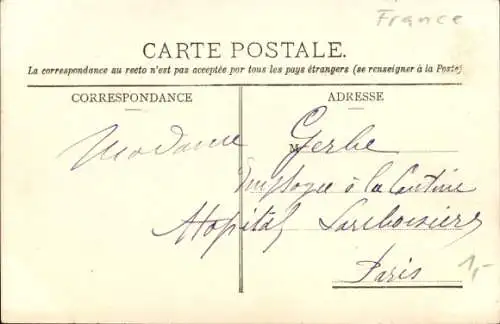 France
CARTE POSTALE.
La correspondance au recto n'est pas acceptée par tous les pays étrangers (se renseigner à la Poste)
CORRESPONDANCE
ADRESSE
Madame Gerbe
M
Employée à la Cantine
Hopital Lariboisière
Paris
1,-